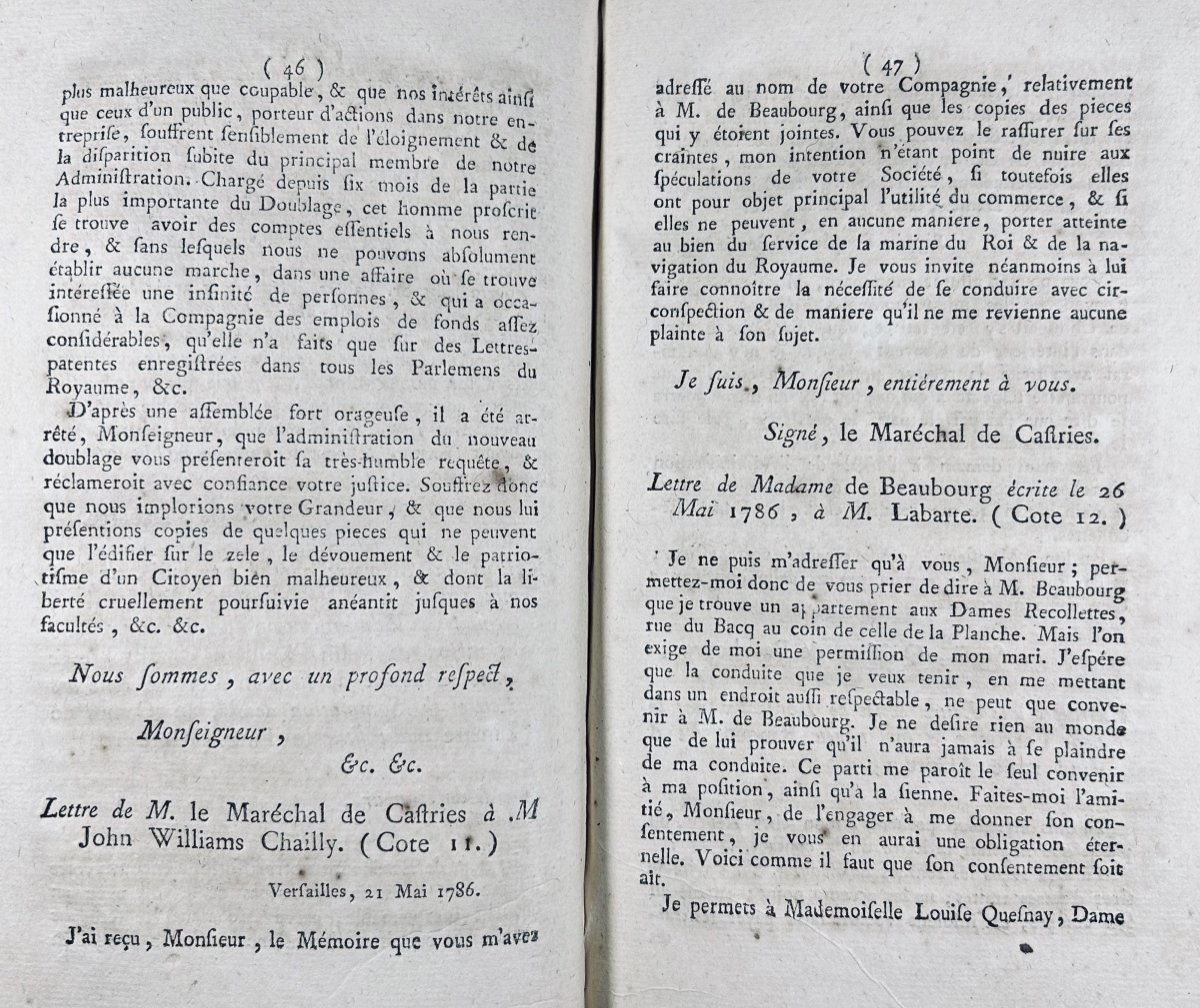 ( 46 )
plus malheureux que coupable, & que nos intérêts ainſi
que ceux d'un public, porteur d'actions dans notre en-
trepriſe, ſouffrent ſenſiblement de l'éloignement & de
la diſparition ſubite du principal membre de notre
Adminiſtration. Chargé depuis ſix mois de la partie
la plus importante du Doublage, cet homme proſcrit
ſe trouve avoir des comptes eſſentiels à nous ren-
dre, & ſans leſquels nous ne pouvons abſolument
établir aucune marche, dans une affaire où ſe trouve
intéreſſée une infinité de perſonnes, & qui a occa-
ſionné à la Compagnie des emplois de fonds aſſez
conſidérables, qu'elle n'a faits que ſur des Lettres-
patentes enregiſtrées dans tous les Parlemens du
Royaume, &c.
D'après une aſſemblée fort orageuſe, il a été ar-
rêté, Monſeigneur, que l'adminiſtration du nouveau
doublage vous préſenteroit ſa très-humble requête, &
réclameroit avec confiance votre juſtice. Souffrez donc
que nous implorions votre Grandeur, & que nous lui
préſentions copies de quelques pieces qui ne peuvent
que l'édifier ſur le zele, le dévouement & le patrio-
tiſme d'un Citoyen bien malheureux, & dont la li-
berté cruellement pourſuivie anéantit juſques à nos
facultés, &c. &c.
Nous ſommes, avec un profond reſpect,
Monſeigneur,
&c. &c.
Lettre de M. le Maréchal de Caſtries à M
John Williams Chailly. ( Cote 11. )
Verſailles, 21 Mai 1786.
J'ai reçu, Monſieur, le Mémoire que vous m'avez
( 47 )
adreſſé au nom de votre Compagnie, relativement
à M. de Beaubourg, ainſi que les copies des pieces
qui y étoient jointes. Vous pouvez le raſſurer ſur ſes
craintes, mon intention n'étant point de nuire aux
ſpéculations de votre Société, ſi toutefois elles
ont pour objet principal l'utilité du commerce, & ſi
elles ne peuvent, en aucune maniere, porter atteinte
au bien du ſervice de la marine du Roi & de la na-
vigation du Royaume. Je vous invite néanmoins à lui
faire connoître la néceſſité de ſe conduire avec cir-
conſpection & de maniere qu'il ne me revienne aucune
plainte à ſon ſujet.
Je ſuis, Monſieur, entiérement à vous.
Signé, le Maréchal de Caſtries.
Lettre de Madame de Beaubourg écrite le 26
Mai 1786, à M. Labarte. ( Cote 12. )
Je ne puis m'adreſſer qu'à vous, Monſieur; per-
mettez-moi donc de vous prier de dire à M. Beaubourg
que je trouve un appartement aux Dames Recollettes,
rue du Bacq au coin de celle de la Planche. Mais l'on
exige de moi une permiſſion de mon mari. J'eſpére
que la conduite que je veux tenir, en me mettant
dans un endroit auſſi reſpectable, ne peut que conve-
nir à M. de Beaubourg. Je ne deſire rien au monde
que de lui prouver qu'il n'aura jamais à ſe plaindre
de ma conduite. Ce parti me paroît le ſeul convenir
à ma poſition, ainſi qu'à la ſienne. Faites-moi l'ami-
tié, Monſieur, de l'engager à me donner ſon con-
ſentement, je vous en aurai une obligation éter-
nelle. Voici comme il faut que ſon conſentement ſoit
ait.
Je permets à Mademoiſelle Louiſe Queſnay, Dame